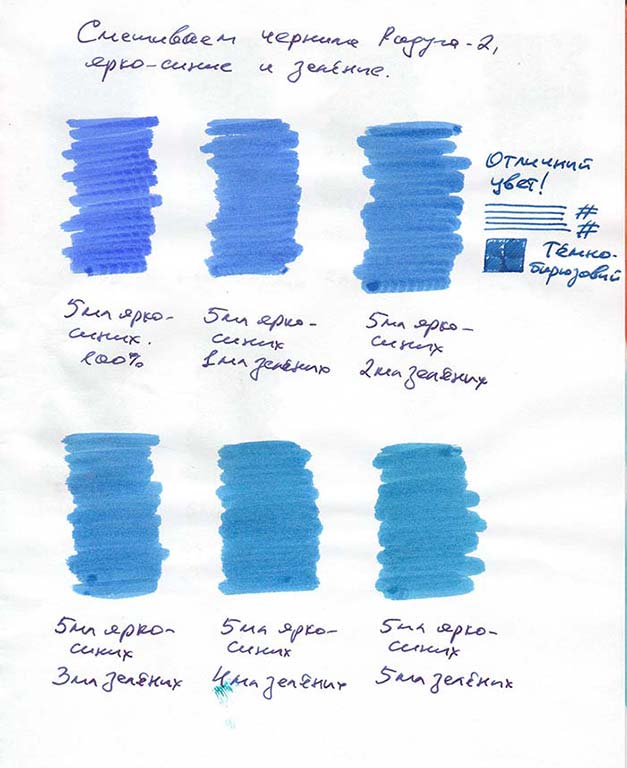 Смешиваем чернила Радуга-2,
ярко-синие и зелёние.
Отличний
цвет!
#
#
Тёмно-
бирюзовий
5мл ярко-
синих.
100%
5мл ярко-
синих
1мл зелёних
5мл ярко-
синих
2мл зелёних
5мл ярко-
синих
3мл зелёних
5мл ярко-
синих
4мл зелёних
5мл ярко-
синих
5мл зелёних